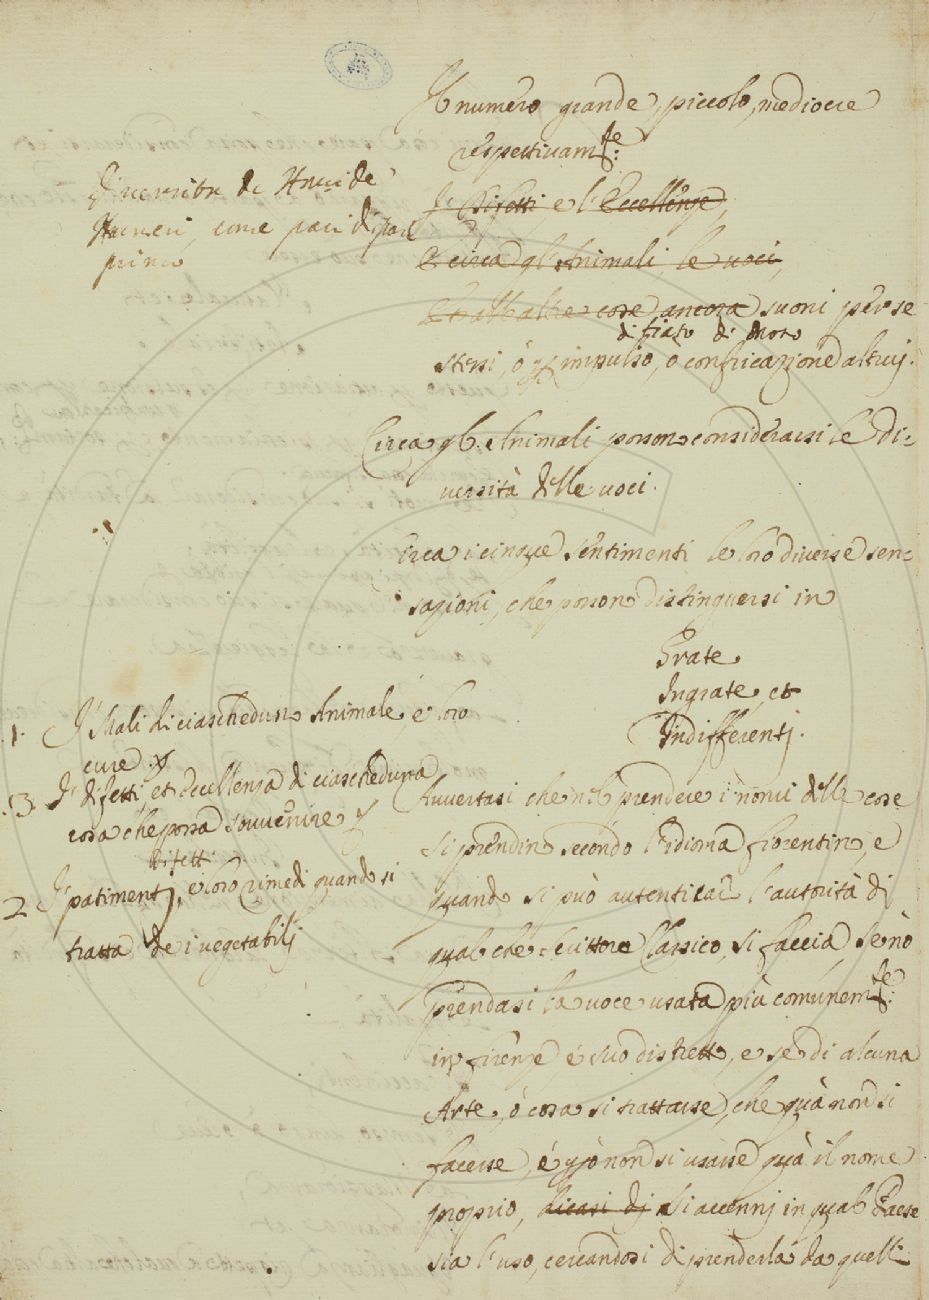 Il numero grande, piccolo, mediocre
respettivam.te:
Diversità de
Numeri, come pari dispari
primi
I Difetti e l'Eccellenze,
E circa gl'Animali, le voci,
cose ancora suoni per se
di fiato di moto
stessi, ò p impulso, o confricazione altrui.
Circa gl'Animali posson considerarsi le di=
versità delle voci.
Circa i cinque sentimenti le loro diverse sen=
sazioni, che posson distinguersi in
Grate
Ingrate, et
Indifferentj.
.1. I Mali di ciaschedun Animale e loro
cure
.3. I difetti, et eccellenza di ciascheduna
cosa che possa sovvenire
difetti
2 I patimentj, e loro rimedi quando si
tratta de i vegetabilj
Avvertasi che nel prendere i nomi delle cose
si prendin secondo l'Idioma fiorentino, e
quando si può autenticar l'autorità di
qualche Scrittore Classico, si faccia, se nò
prendasi la voce usata più comunem.te:
in firenze é suo distretto, e se di alcuna
Arte, ó cosa si trattasse, che quà non si
facesse, é però non si usasse quà il nome
proprio, dicasi dj si accennj in qual Paese
sia l'uso, cercandosi di prenderla da quelli